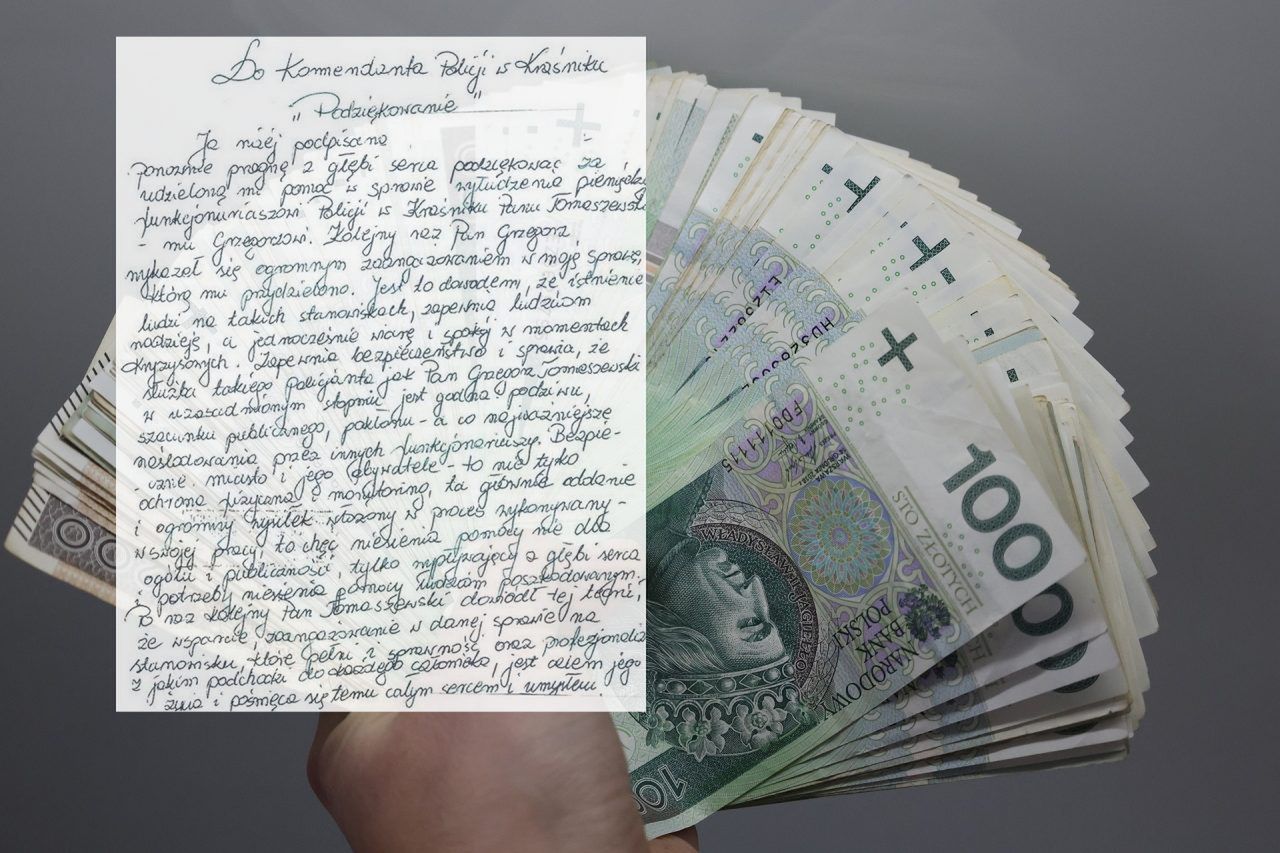 Do Komendanta Policji w Kraśniku
"Podziękowanie"
Ja niżej podpisana
ponownie pragnę z głębi serca podziękować za
udzieloną mi pomoc w sprawie wyłudzenia pieniędzy
funkcjonariuszowi Policji w Kraśniku Panu Tomaszewskie
- mu Grzegorzowi. Kolejny raz Pan Grzegorz
wykazał się ogromnym zaangażowaniem w moją sprawę,
którą mu przydzielono. Jest to dowodem, że istnienie
ludzi na takich stanowiskach, zapewnia ludziom
nadzieję, a jednocześnie wiarę i spokój w momentach
kryzysowych. Zapewnia bezpieczeństwo i sprawia, że
służba takiego policjanta jak Pan Grzegorz Tomaszewski
w uzasadnionym stopniu jest godna podziwu,
szacunku publicznego, pokłonu - a co najważniejsze
naśladowania przez innych funkcjonariuszy. Bezpie-
czne miasto i jego obywatele - to nie tylko
ochrona fizyczna, monitoring, ta głównie oddanie
i ogromny wysiłek włożony w proces wykonywany -
w swojej pracy, to chęć niesienia pomocy nie dla
ogółu i publiczności, tylko wypływający z głębi serca
i potrzeby niesienia pomocy ludziom poszkodowanym.
Po raz kolejny Pan Tomaszewski dowiódł tej
że wsparcie zaangażowanie w danej sprawie na
stanowisku, które pełni i sprawność oraz profesjonalizm
z jakim podchodzi do każdego człowieka, jest celem jego
życia i poświęca się temu całym sercem i umysłem.
100
STO ZŁOTYCH
NARODOWY
BANK
POLSKI
WŁADYSŁAW I JAGIEŁŁO
FD0111115
100